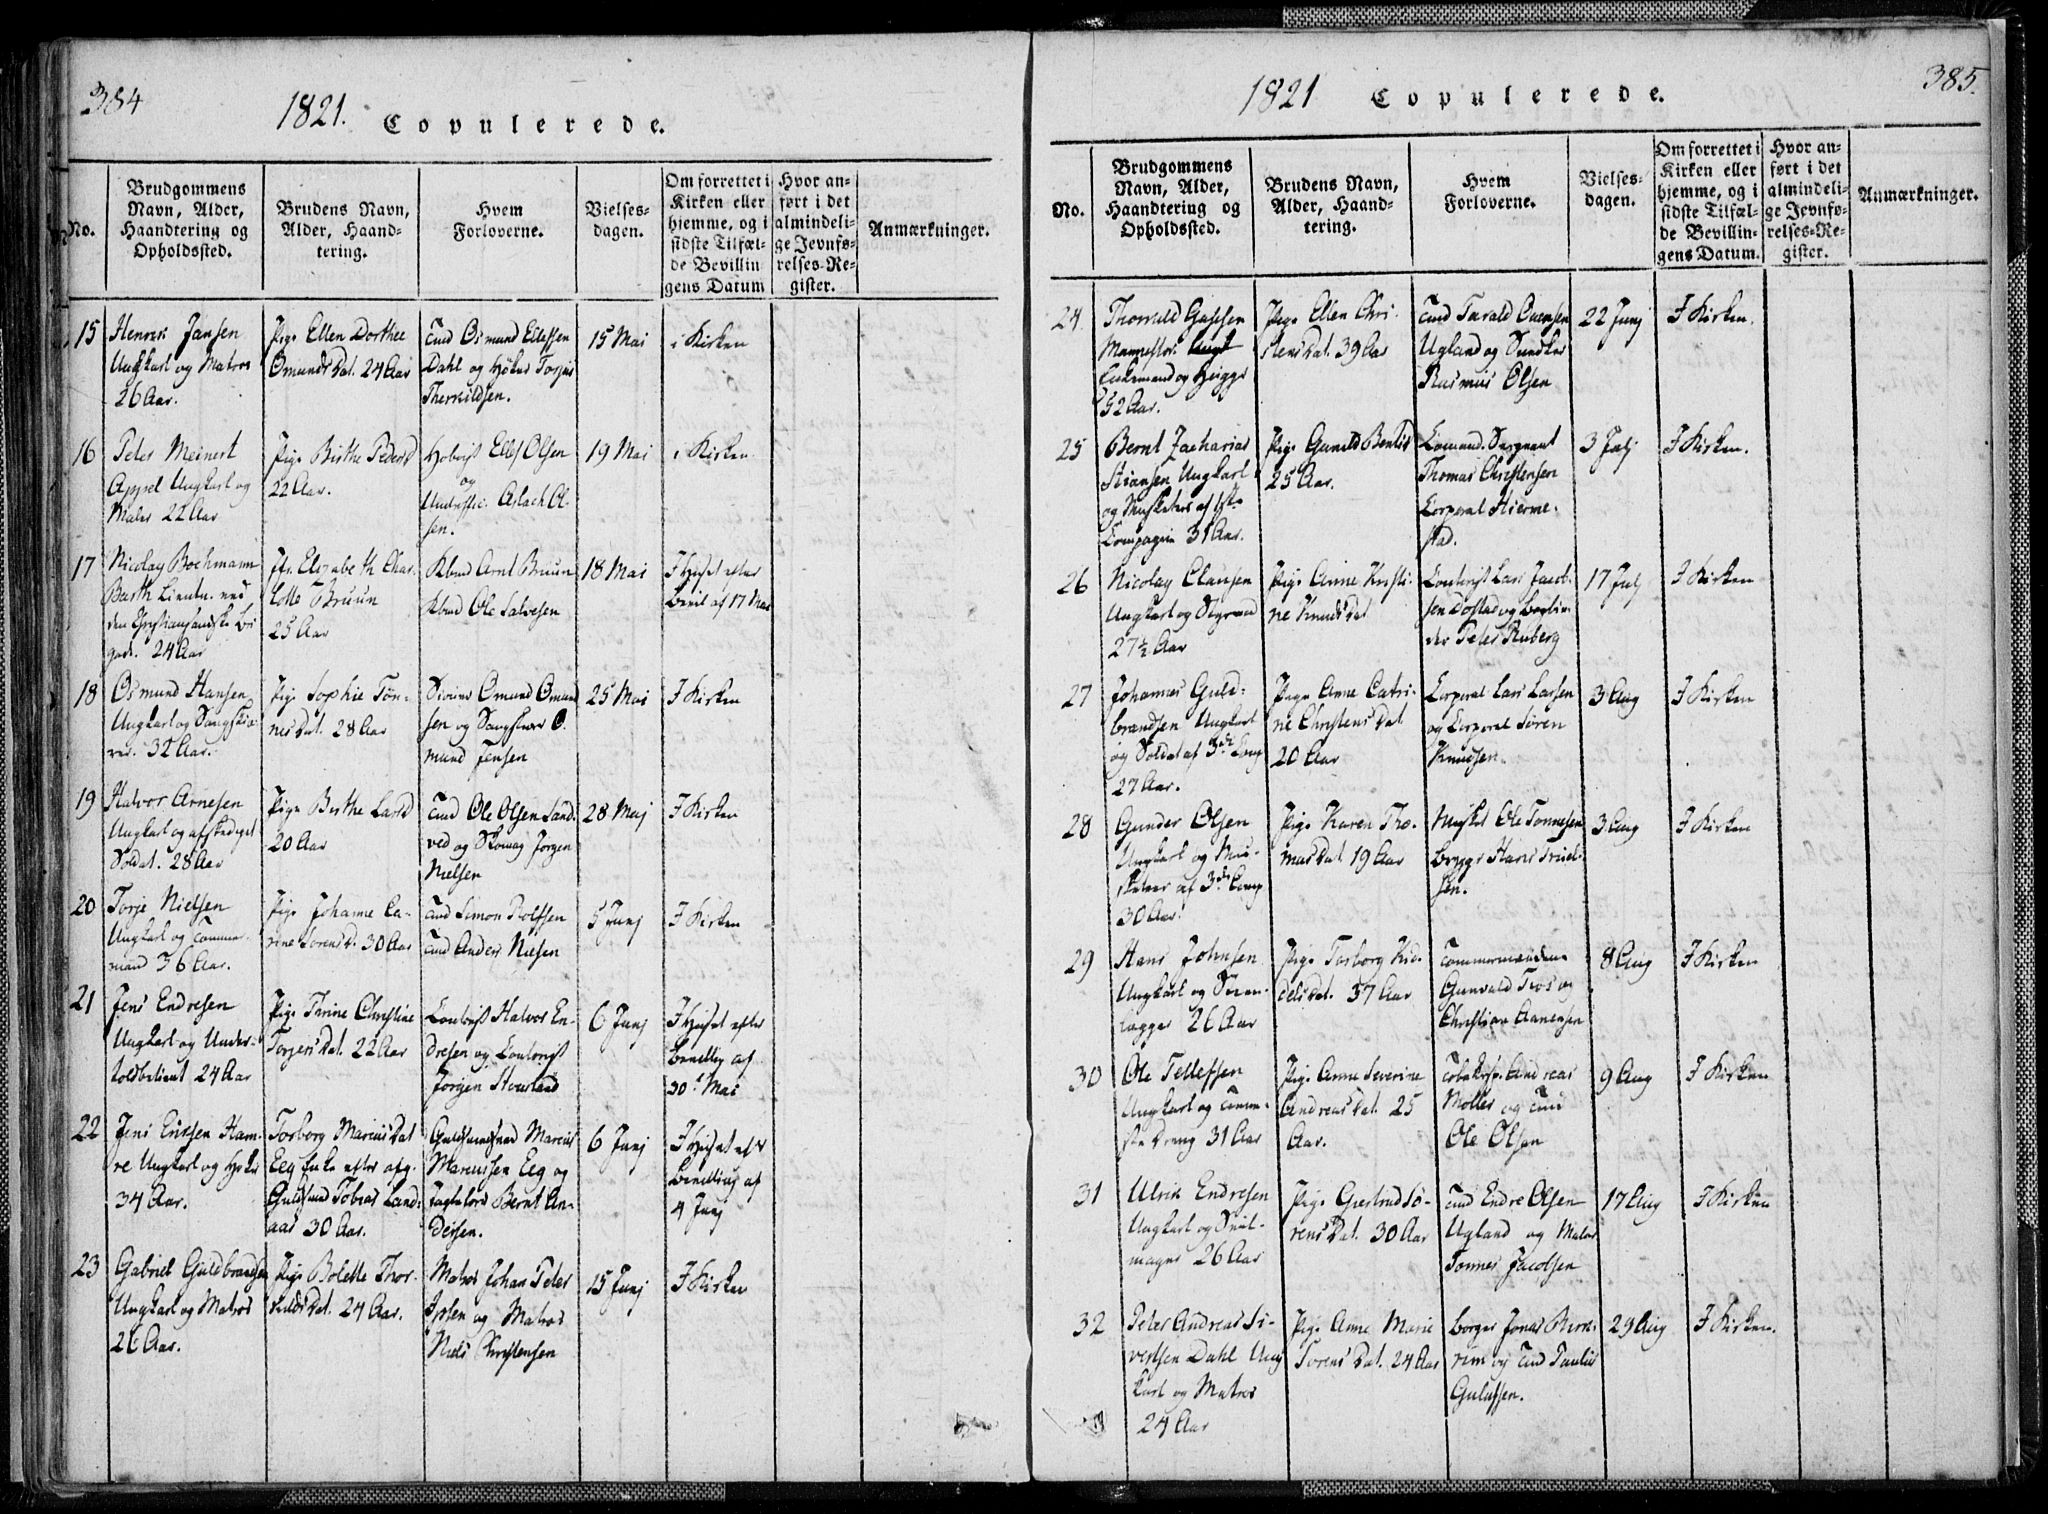 384
1821. Copulerede.
No.
Brudgommens
Navn, Alder,
Haandtering og
Opholdssted.
Brudens Navn,
Alder, Haand-
tering.
Hvem
Forloverne.
Vielses-
dagen.
Om forrettet i
Kirken eller
hjemme, og i
sidste Tilfæl-
de Bevillin
gens Datum
Hvor an-
ført i det
almindeli-
ge Jevnfø-
relses-Re-
gister.
Anmærkninger.
15
Henrik Jansen
Ungkarl og Matros
26 Aar.
Pige Ellen Dorthee
Omunds Dat. 24 Aar
Tmd Osmund Ellefsen
Dahl og Høker Torjus
Therkildsen.
15 Mai
i Kirken
16
Peter Meinert
Appel Ungkarl og
Maler 22 Aar
Pige Birthe Peders D
22 Aar.
Ellef Olsen
og
Aslach Ol-
sen.
19 Mai
i Kirken
17
Nicolay Bochmann
Barth Lieutn. ved
den Christiansandske Bri
gade. 24 Aar
Jfr. Elisabeth Char-
lotte Bruun
25 Aar
Kbmd Arnt Bruun
Kbmd Ole Salvesen
18 Mai
I Huset efter
Bevil af 17 Mai
18
Osmund Hansen
Ungkarl og Saugskiæ-
rer. 32 Aar.
Pige Sophie Tøn-
nes Dat. 28 Aar
Omund Omund
sen og Saugskiær O-
mund Jensen
25 Mai
I Kirken
19
Halvor Arnesen
Ungkarl og afskediget
Soldat. 28 Aar
Pige Birthe Lars D
20 Aar
Tmd Ole Olsen Sand-
ved og Skomag Jørgen
Nielsen
28 Maj
I Kirken
20
Torje Nielsen
Ungkarl og Tømmer-
mand 36 Aar.
Pige Johanne Ca-
rine Sørens D. 30 Aar
Tmd Simon Rolfsen
Tmd Anders Nielsen
5 Junj
I Kirken
21
Jens Endresen
Ungkarl og Under-
toldbetient 24 Aar
Pige Tarine Christine
Torgers Dat. 22 Aar
Contorist Halvor En-
dresen og Contorist
Jørgen
6 Junj
I Huset efter
Bevilling af
30. Mai
22
Jens Ericsen Ham-
re Ungkarl og Høker
34 Aar.
Torborg Marcus Dat
Eeg Enke efter afg.
Guldsmed Tobias Land-
aas 30 Aar.
Guldsmed Marcus
Marcussen Eeg og
Bernt An-
dersen.
6 Junj
I Huset efter
Bevilling af
4 Junj
23
Gabriel Guldbrandsen
Ungkarl og Matros
26 Aar.
Pige Bolette Thor-
kilds Dat. 24 Aar.
Matros Johan Peter
Ipsen og Matros
Niels Christensen
15 Junj
I Kirken
385.
1821 Copulerede.
No.
Brudgommens
Navn, Alder,
Haandtering og
Opholdssted.
Brudens Navn,
Alder, Haand-
tering.
Hvem
Forloverne.
Vielses-
dagen.
Om forrettet i
Kirken eller
hjemme, og i
sidste Tilfæl-
de Bevillin-
gens Datum.
Hvor an-
ført i det
almindeli-
ge Jevnfø-
relses-Re-
gister.
Anmærkninger.
24.
Thorvald
Enkemand og
52 Aar.
Pige Ellen Chri-
stens Dat. 39 Aar
Tmd Tarald
Ugland og
Rasmus Olsen
22 Junj
I Kirken.
25
Bernt Zacharias
Stiansen Ungkarl
og Musketeer af 1ste
Compagnie 31 Aar.
Pige Gunild Bents D
25 Aar.
Comand. Sergeant
Thomas Christensen
Corporal Hierme-
stad.
3 Julj
I Kirken.
26
Nicolay Clausen
Ungkarl og Styrmand
27½ Aar
Pige Anne Kirsti-
ne Knuds Dat
Contorist Lars Jacob-
sen og Bogbin-
der Peter Ruberg
17 Julj
I Kirken
27
Johannes Guld-
brandsen Ungkarl
og Soldat af 3die Comp
27 Aar.
Pige Anne Catri-
ne Christens Dat
20 Aar
Corporal Lars Larsen
og Corporal Søren
Knudsen.
3 Aug
I Kirken
28
Gunder Olsen
Ungkarl og Mus-
keteer af 3die Comp
30 Aar.
Pige Karen Tho-
mas Dat. 19 Aar
Musket Ole Tønnesen
Hans Truel-
sen.
3 Aug
I Kirken
29
Hans Johnsen
Ungkarl og
26 Aar
Pige Torborg Kid-
dels Dat. 37 Aar
Tømmermændene
Gunvald Trøs og
Christian Aanensen
8 Aug
I Kirken
30
Ole Tellefsen
Ungkarl og
Dreng 31 Aar
Pige Anne Severine
Andreas Dat. 25
Aar.
Andreas
Møller og Tmd
Ole Olsen
9 Aug
I Kirken
31
Ulrik Endresen
Ungkarl og Seil-
mager 26 Aar
Pige Giertrud Sø-
rens Dat. 30 Aar
Tmd Endre Olsen
Ugland og Maler
Tønnes Jacobsen
17 Aug
I Kirken
32
Peter Andreas Si-
vertsen Dahl Ung
karl og Matros
24 Aar
Pige Anne Marie
Sørens Dat. 24 Aar
Borger Jonas Birke-
rem og Tmd Paulus
Gulufsen.
29 Aug
I Kirken.